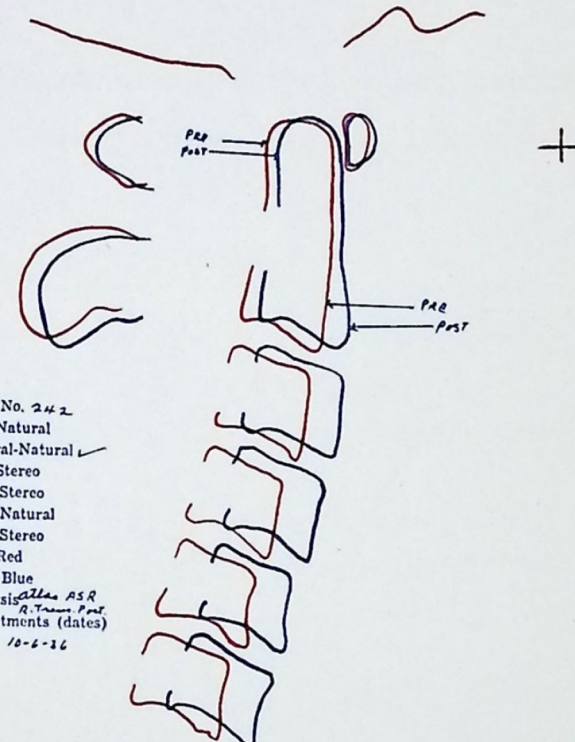 PRE
POST
PRE
POST
No. 242
Natural
al-Natural ✓
Stereo
Stereo
Natural
Stereo
Red
Blue
sis atlas ASR
R. Trans. Post.
tments (dates)
10-6-36